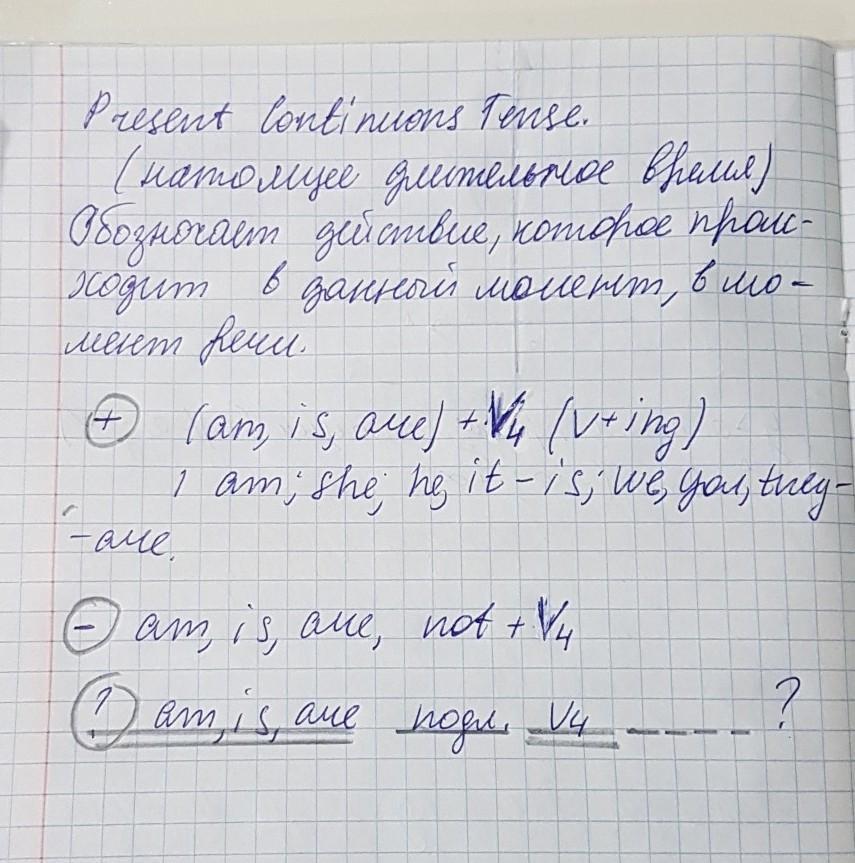 Present Continuous Tense.
(настоящее длительное время)
Обозночает действие, которое проис-
ходит в данный момент, в мо-
мент речи.
+ (am, is, are) + V4 (V+ing)
I am; she, he, it - is; we, you, they-
-are.
- am, is, are, not + V4
? am, is, are подл. V4 _ _ _ _ ?